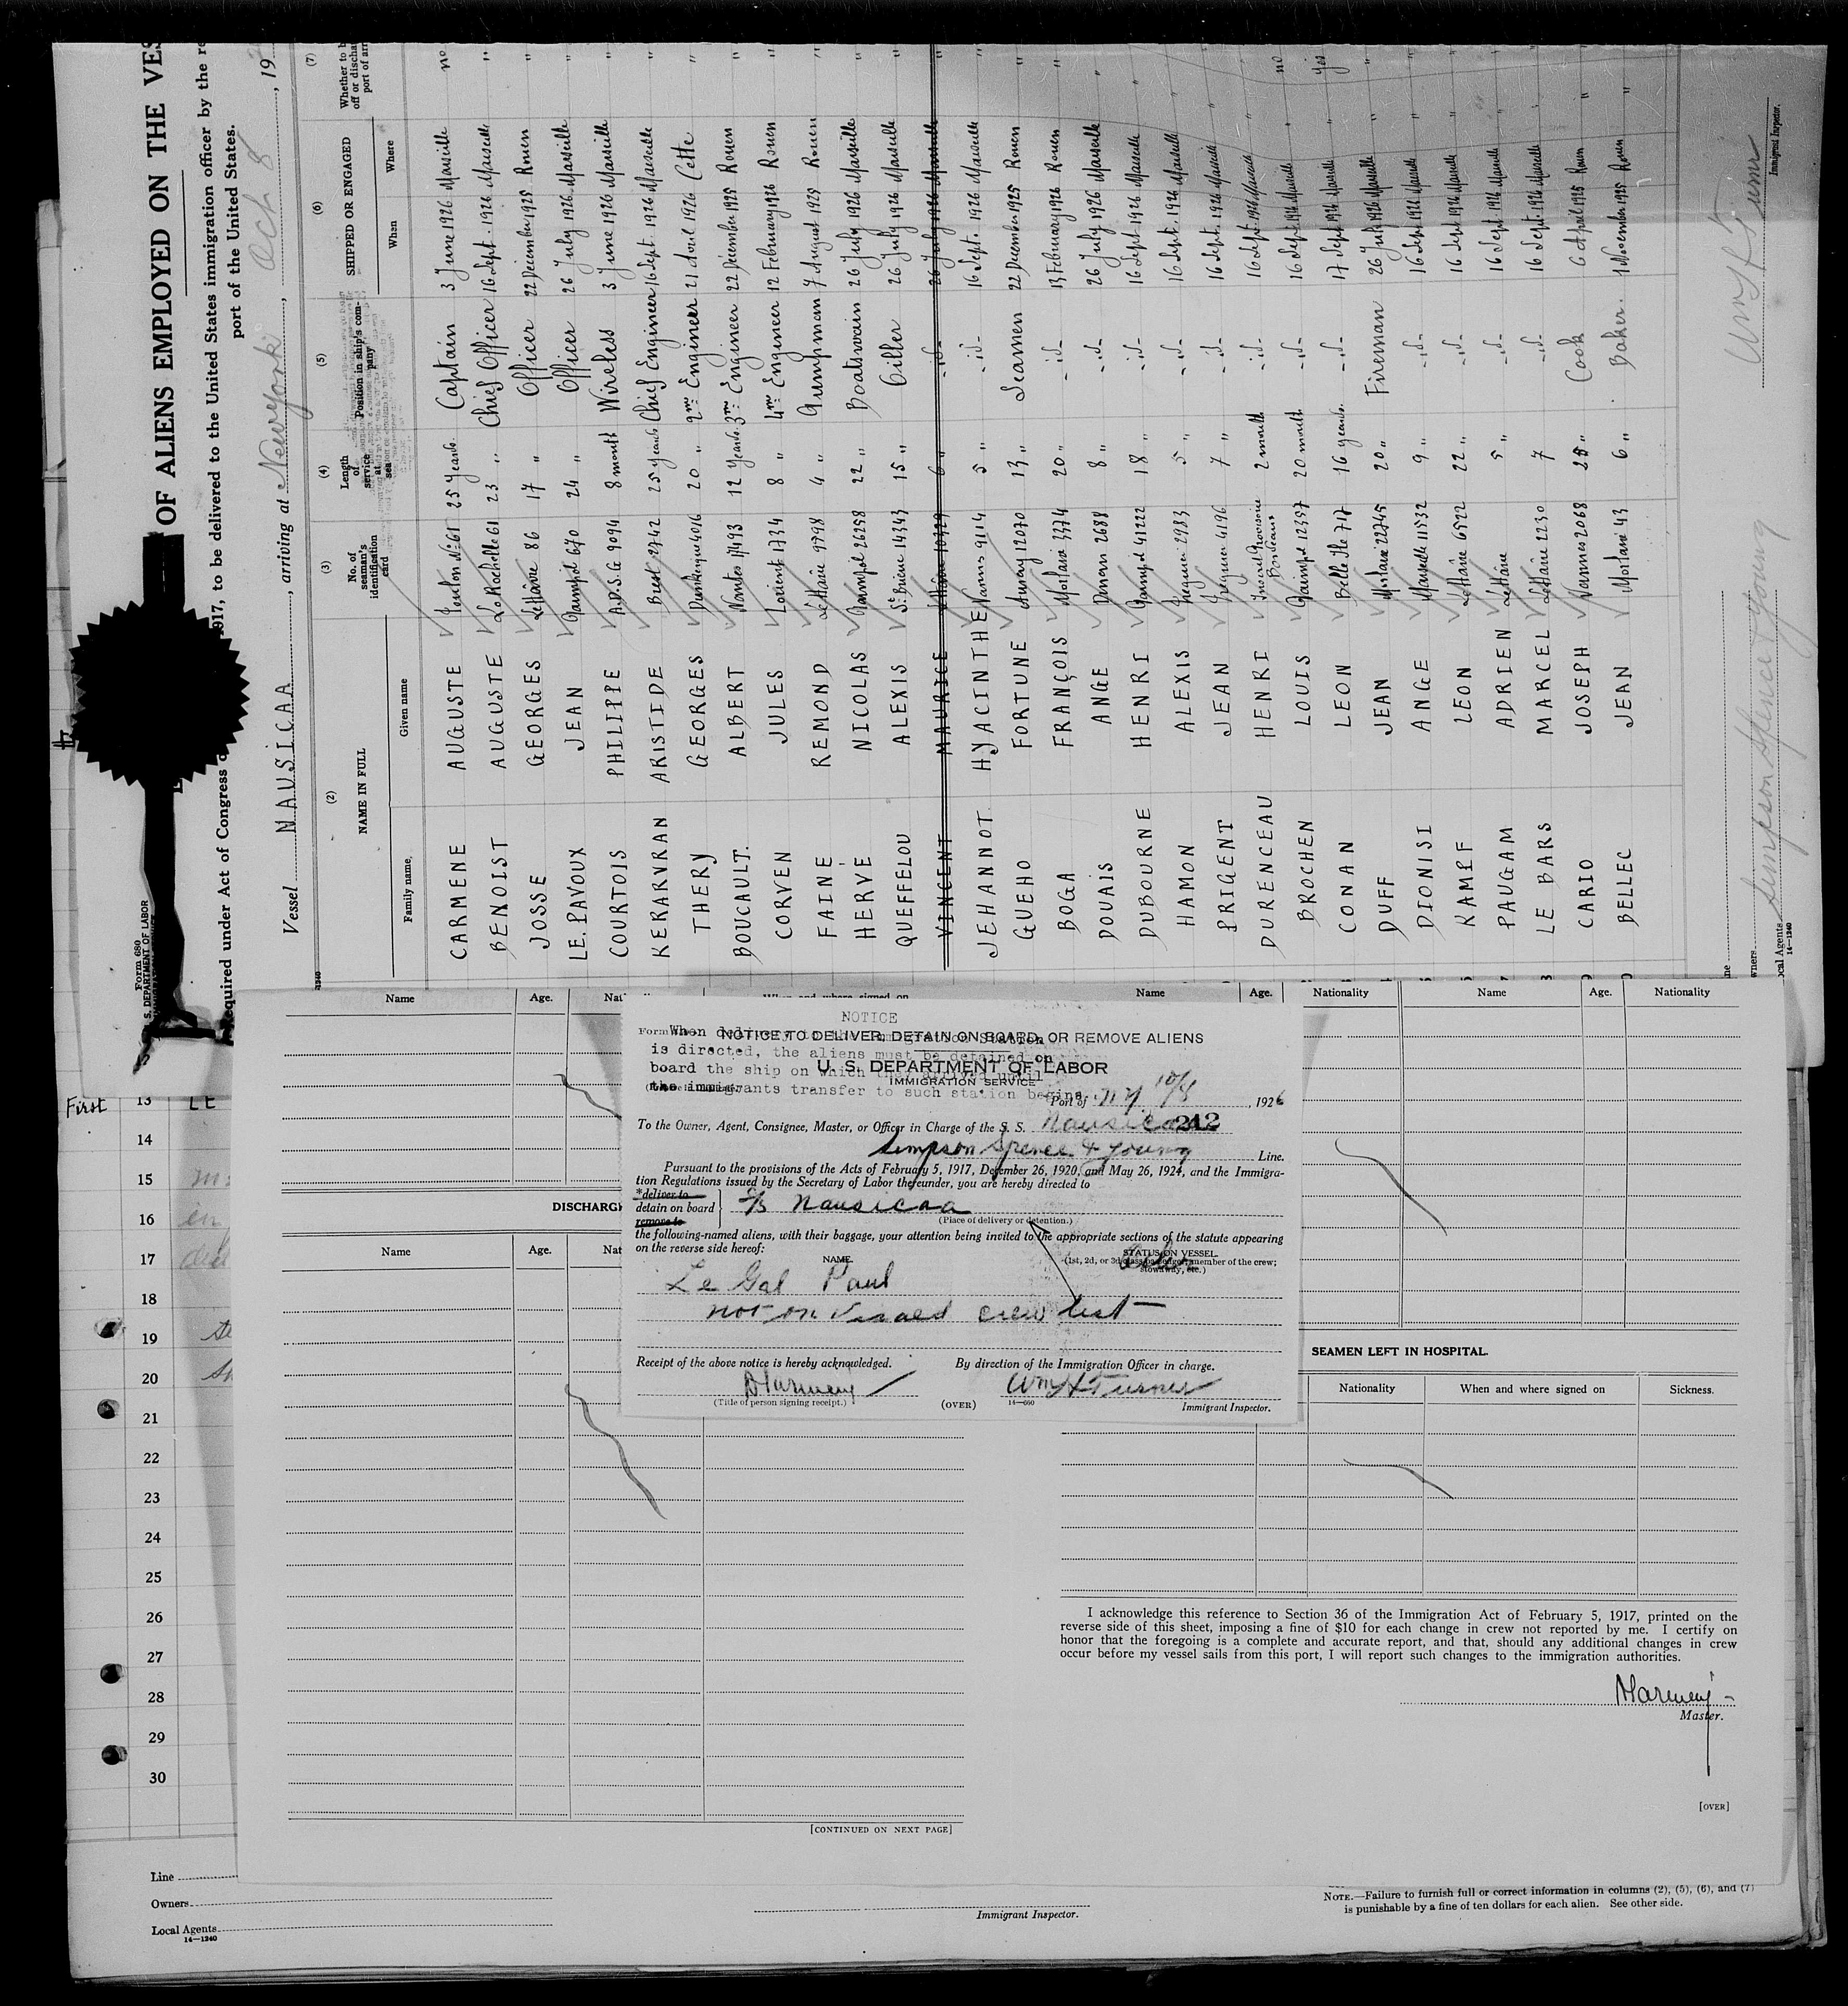 Form 680
U. S. DEPARTMENT OF LABOR
OF ALIENS EMPLOYED ON THE VES
Required under Act of Congress 1917, to be delivered to the United States immigration officer by the re
port of the United States.
Vessel NAUSICAA, arriving at Newyork, Oct 8, 19
(2) (3) (4) (5) (6) (7)
NAME IN FULL No. of seaman's identification card Length of service at sea Position in ship's company SHIPPED OR ENGAGED Whether to b off or discha port of arr
Family name Given name When Where
CARMENE AUGUSTE 61 25 years Captain 3 June 1926 Marseille no
BENOIST AUGUSTE La Rochelle 61 23 " Chief Officer 16 Sept. 1926 Marseille "
JOSSE GEORGES LeHâvre 86 17 " Officer 22 December 1925 Rouen "
LE.PAVOUX JEAN Paimpol 670 24 " Officer 26 July 1926 Marseille "
COURTOIS PHILIPPE A.D.S.G 9094 8 month Wireless 3 June 1926 Marseille "
KERARVRAN ARISTIDE Brest 2742 25 years Chief Engineer 16 Sept. 1926 Marseille "
THERY GEORGES Dunkerque 4016 20 " 2me Engineer 21 April 1926 Cette "
BOUCAULT. ALBERT Nantes 17493 12 years 3me Engineer 22 December 1925 Rouen "
CORVEN JULES Lorient 1734 8 " 4me Engineer 12 February 1926 Rouen "
FAINE REMOND LeHâvre 9798 4 " Pumpman 7 August 1925 Rouen "
HERVÉ NICOLAS Paimpol 26258 22 " Boatswain 26 July 1926 Marseille "
QUEFFELOU ALEXIS St Brieuc 14343 15 " Oiller 26 July 1926 Marseille "
VINCENT MAURICE LeHâvre 10929 6 " -id- 26 July 1926 Marseille "
JEHANNOT. HYACINTHE Vannes 9114 5 " -id- 16 Sept. 1926 Marseille "
GUEHO FORTUNE Auray 12070 13 " Seamen 22 December 1925 Rouen "
BOGA FRANÇOIS Morlaix 3774 20 " -id- 13 February 1926 Rouen "
DOUAIS ANGE Dinan 2688 8 " -id- 26 July 1926 Marseille "
DUBOURNE HENRI Paimpol 41222 18 " -id- 16 Sept 1926 Marseille "
HAMON ALEXIS Treguier 2983 5 " -id- 16 Sept. 1926 Marseille "
PRIGENT JEAN Treguier 4196 7 " -id- 16 Sept. 1926 Marseille "
DURENCEAU HENRI Bordeaux 2 month -id- 16 Sept 1926 Marseille " no
BROCHEN LOUIS Paimpol 12357 20 month -id- 16 Sept 1926 Marseille "
CONAN LEON Belle Ile 717 16 years. -id- 17 Sept 1926 Marseille " yes
DUFF JEAN Morlaix 22745 20 " Fireman 26 July 1926 Marseille "
DIONISI ANGE Marseille 11532 9 " -id- 16 Sept 1926 Marseille "
KAMPF LEON LeHâvre 6522 22 " -id- 16 Sept 1926 Marseille "
PAUGAM ADRIEN LeHâvre 5 " -id- 16 Sept 1926 Marseille "
LE BARS MARCEL LeHâvre 2230 7 -id- 16 Sept 1926 Marseille "
CARIO JOSEPH Vannes 2068 25 " Cook 6 April 1925 Rouen "
BELLEC JEAN Morlaix 43 6 " Baker. 7 November 1925 Rouen "
Owners
Local Agents Simpson Spence & Young
14—1240
Wm H Turner
Immigrant Inspector.
Name Age. When and where signed on Name Age. Nationality Name Age. Nationality
NOTICE
When delivery to the Immigration Station
is directed, the aliens must be detained on
board the ship on which they arrived until
the immigrants transfer to such station begins.
NOTICE TO DELIVER, DETAIN ON BOARD, OR REMOVE ALIENS
U. S. DEPARTMENT OF LABOR
IMMIGRATION SERVICE
Port of N Y 10/8, 1926
To the Owner, Agent, Consignee, Master, or Officer in Charge of the S. S. Nausicaa 242
Simpson Spence & Young Line.
Pursuant to the provisions of the Acts of February 5, 1917, December 26, 1920, and May 26, 1924, and the Immigra-
tion Regulations issued by the Secretary of Labor thereunder, you are hereby directed to
*deliver to
detain on board S/S Nausicaa
remove to
(Place of delivery or detention.)
the following-named aliens, with their baggage, your attention being invited to the appropriate sections of the statute appearing
on the reverse side hereof:
NAME. STATUS ON VESSEL.
(1st, 2d, or 3d class passenger; member of the crew; stowaway, etc.)
Le Gal Paul
not on visaed crew list
Receipt of the above notice is hereby acknowledged. By direction of the Immigration Officer in charge.
Wm H Turner
(Title of person signing receipt.) (OVER) 14—660 Immigrant Inspector.
First 13 LE
14
15
16 en
17
18
19
20
21
22
23
24
25
26
27
28
29
30
DISCHARG
Name Age. Nat
SEAMEN LEFT IN HOSPITAL.
Nationality When and where signed on Sickness.
I acknowledge this reference to Section 36 of the Immigration Act of February 5, 1917, printed on the
reverse side of this sheet, imposing a fine of $10 for each change in crew not reported by me. I certify on
honor that the foregoing is a complete and accurate report, and that, should any additional changes in crew
occur before my vessel sails from this port, I will report such changes to the immigration authorities.
Master.
[OVER]
[CONTINUED ON NEXT PAGE]
Line
Owners
Local Agents
14—1240
Immigrant Inspector.
NOTE.—Failure to furnish full or correct information in columns (2), (5), (6), and (7)
is punishable by a fine of ten dollars for each alien. See other side.